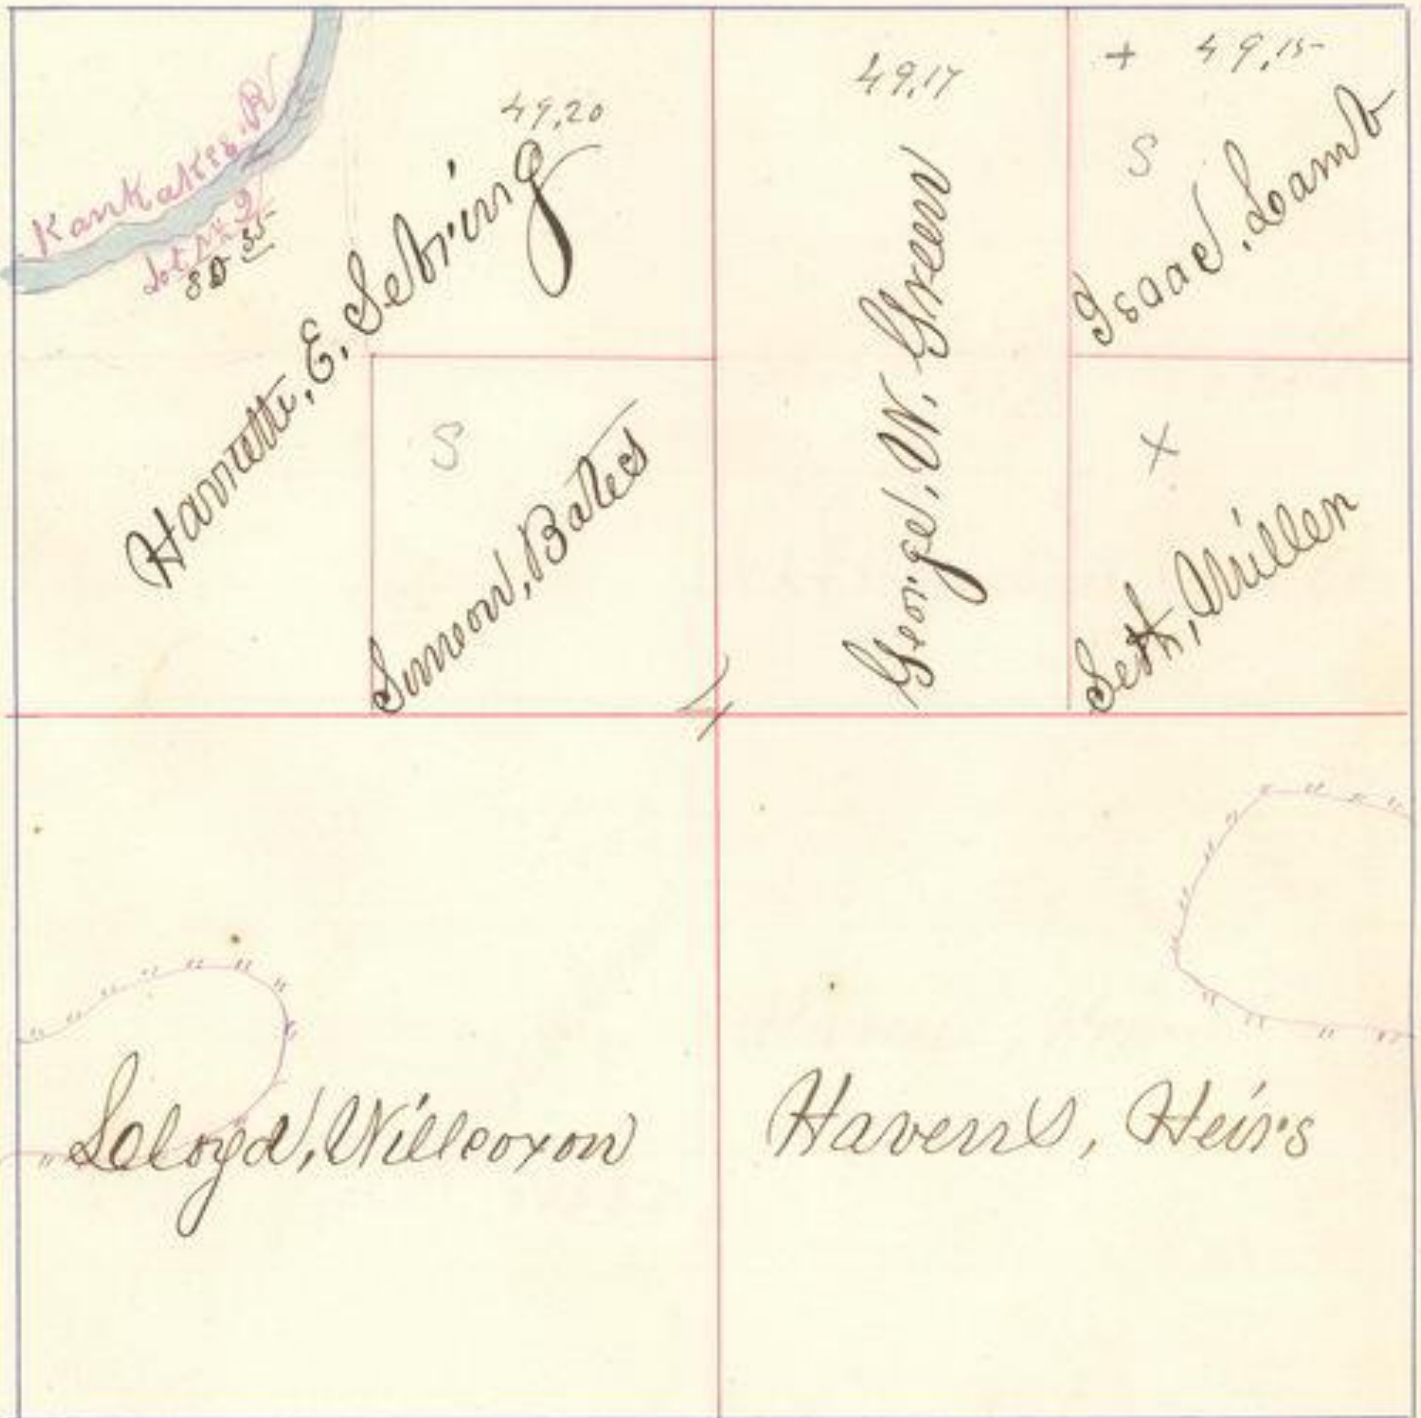 Kankakee. R
Lot No 2
80 35
49,20
Harriette, E. Sebring
S
Simeon, Bates
49,17
George, W. Green
+ 49,15
S
Isaac, Lamb
X
Seth, Miller
4
Loloyd, Willcoxon
Havens, Heirs